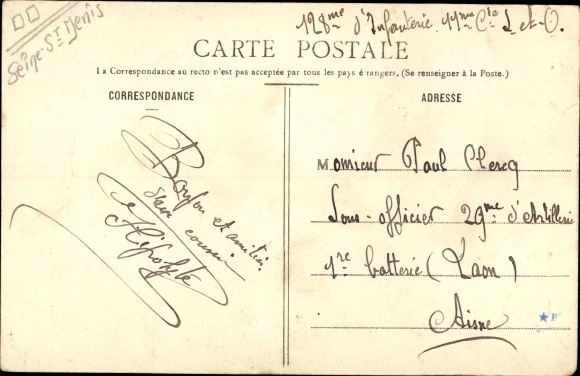 Seine-St Denis
128me d'Infanterie 11me Cie L-et-O.
CARTE POSTALE
La Correspondance au recto n'est pas acceptée par tous les pays é rangers. (Se renseigner à la Poste.)
CORRESPONDANCE
Bonjour et amitiés
d'un cousin
Hipolyte
ADRESSE
Monsieur Paul Clercq
Sous-officier 29me d'Artillerie
1re batterie (Laon)
Aisne
P